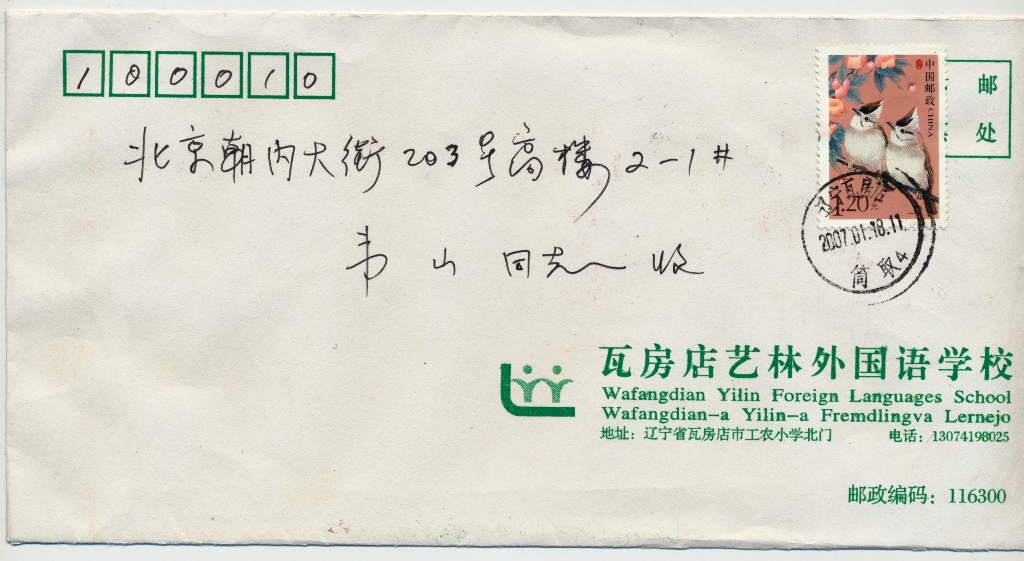 100010
邮
处
中国邮政 CHINA
1.20元
北京朝内大街203号高楼2-1#
韦山同志 收
辽宁瓦房店
2007.01.18.11
筒取4
瓦房店艺林外国语学校
Wafangdian Yilin Foreign Languages School
Wafangdian-a Yilin-a Fremdlingva Lernejo
地址：辽宁省瓦房店市工农小学北门 电话：13074198025
邮政编码：116300